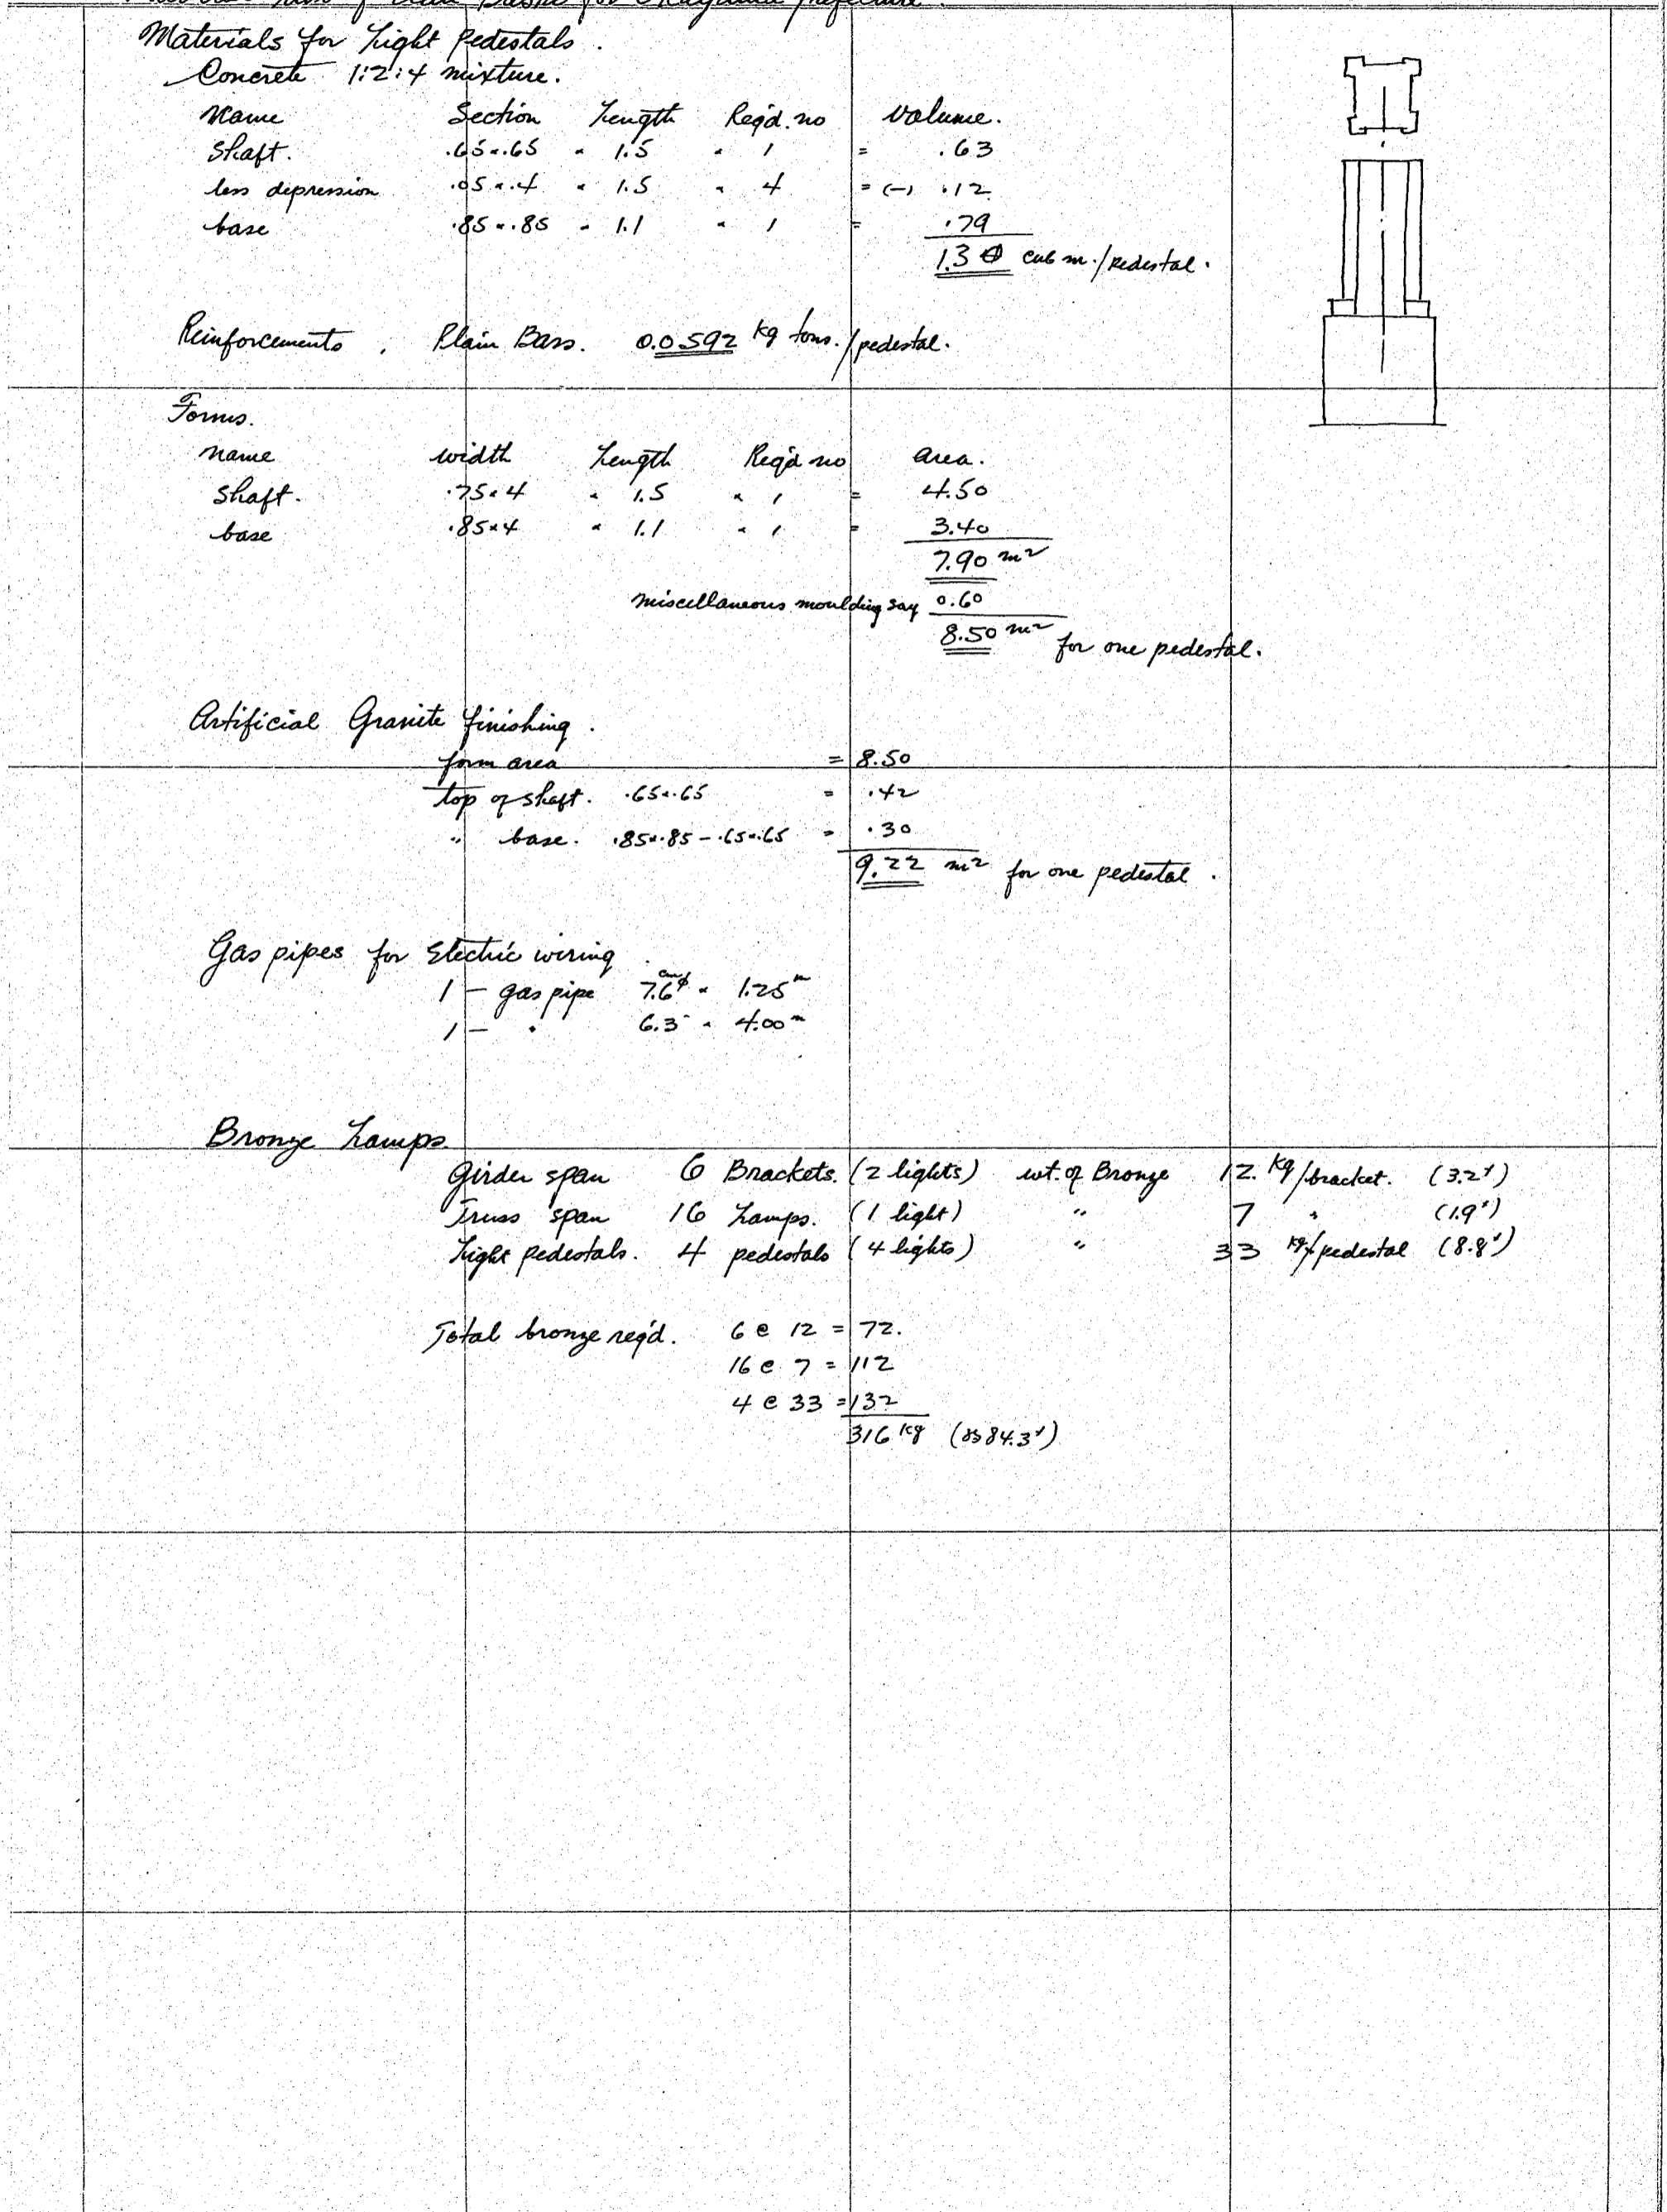 for Okayama prefecture.
Materials for Light Pedestals.
Concrete 1:2:4 mixture.
Name Section Length Reqd. no volume.
Shaft. .65×.65 × 1.5 × 1 = .63
less depression .05×.4 × 1.5 × 4 = (-) .12
base .85×.85 × 1.1 × 1 = .79
1.30 cub m./pedestal.
Reinforcements. Plain Bars. 0.0592 Kg tons./pedestal.
Forms.
Name width Length Reqd no area.
Shaft. .75×4 × 1.5 × 1 = 4.50
base .85×4 × 1.1 × 1 = 3.40
7.90 m²
miscellaneous moulding say 0.60
8.50 m² for one pedestal.
Artificial Granite finishing.
form area = 8.50
top of shaft. .65×.65 = .42
" base. .85×.85 - .65×.65 = .30
9.22 m² for one pedestal.
Gas pipes for Electric wiring.
1 - gas pipe 7.6 cm φ × 1.25 m
1 - " 6.3 " × 4.00 m
Bronze Lamps
Girder span 6 Brackets. (2 lights) wt. of Bronze 12. Kg/bracket. (3.2")
Truss span 16 Lamps. (1 light) " 7 " (1.9")
Light pedestals. 4 pedestals (4 lights) " 33 Kg/pedestal (8.8")
Total bronze req'd. 6 @ 12 = 72.
16 @ 7 = 112
4 @ 33 = 132
316 Kg (84.3")